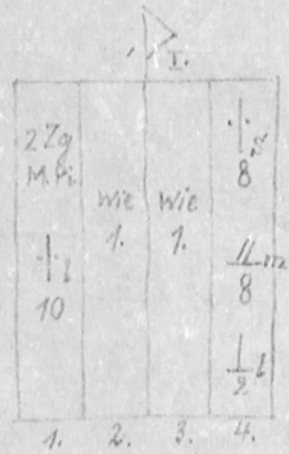 I.
2 Zg
M. Pi.
l
10
wie
1.
wie
1.
s
8
m
8
l
2
1. 2. 3. 4.